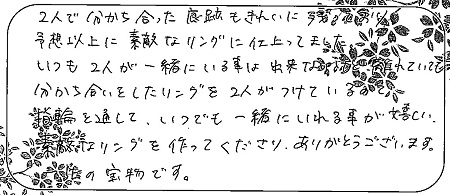 2人で分かち合った痕跡もきれいに残っており
予想以上に素敵なリングに仕上ってました
いつも2人が一緒にいる事は出来な 離れていても
分かち合いをしたリングを2人がつけているので
指輪を通して、いつでも一緒にいれる事が嬉しい
素敵なリングを作ってくださり、ありがとうございます。
の宝物です。